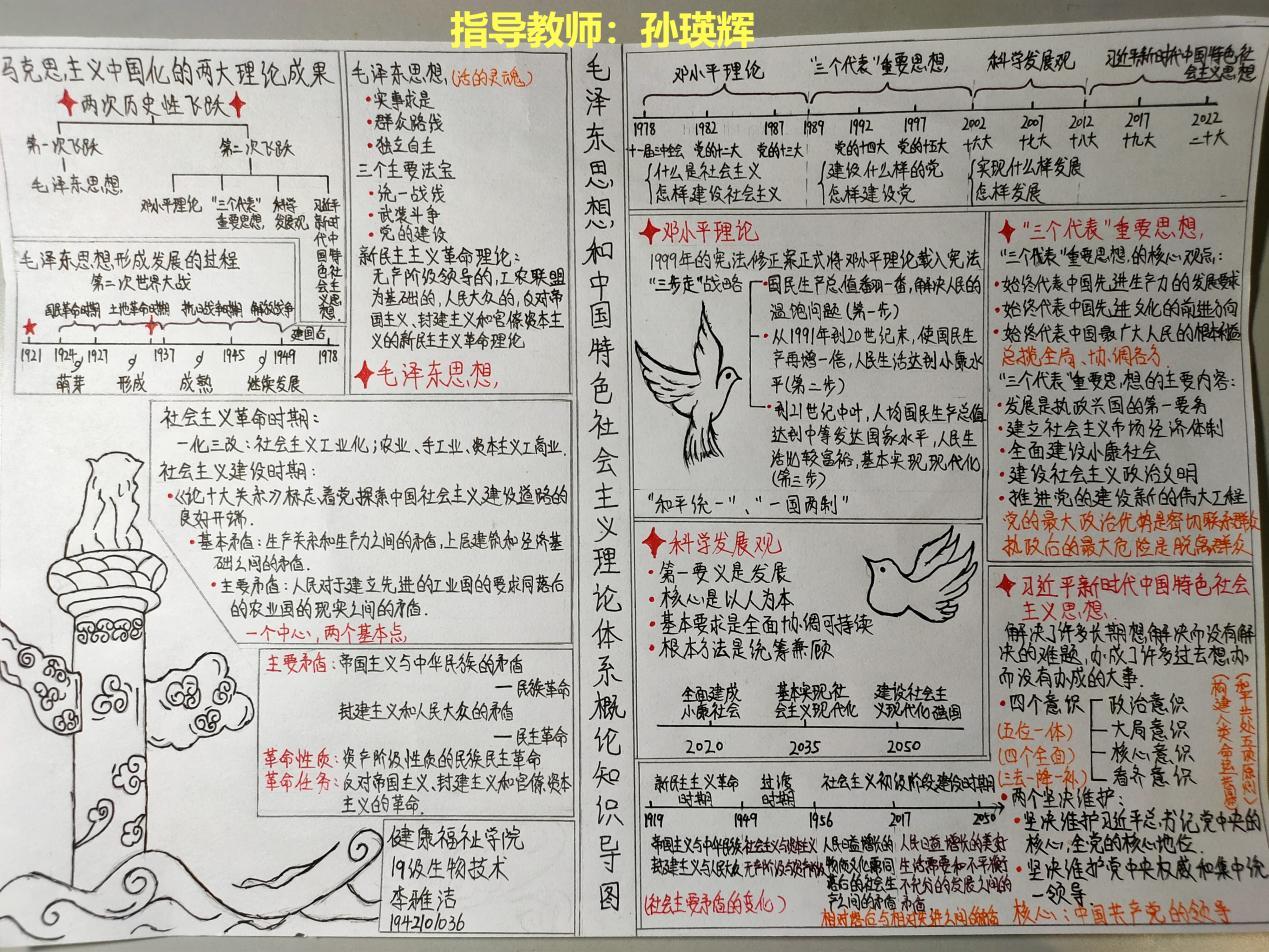 指导教师：孙瑛辉
马克思主义中国化的两大理论成果
两次历史性飞跃
第一次飞跃
第二次飞跃
毛泽东思想
邓小平理论
"三个代表"
重要思想
科学
发展观
习近平
新时
代中
国特
色社
会主
义思
想
毛泽东思想形成发展的过程
第二次世界大战
国民革命时期 土地革命时期 抗日战争时期 解放战争
建国后
1921 1924 1927 1937 1945 1949 1978
萌芽 形成 成熟 继续发展
毛泽东思想(活的灵魂)
·实事求是
·群众路线
·独立自主
三个主要法宝
·统一战线
·武装斗争
·党的建设
新民主主义革命理论：
无产阶级领导的，工农联盟
为基础的，人民大众的，反对帝
国主义、封建主义和官僚资本主
义的新民主主义革命理论
毛泽东思想
社会主义革命时期：
一化三改：社会主义工业化；农业、手工业、资本主义工商业.
社会主义建设时期：
·《论十大关系》标志着党探索中国社会主义建设道路的
良好开端.
·基本矛盾：生产关系和生产力之间的矛盾，上层建筑和经济基
础之间的矛盾.
·主要矛盾：人民对于建立先进的工业国的要求同落后
的农业国的现实之间的矛盾.
一个中心，两个基本点
主要矛盾：帝国主义与中华民族的矛盾
—民族革命
封建主义和人民大众的矛盾
—民主革命
革命性质：资产阶级性质的民族民主革命
革命任务：反对帝国主义、封建主义和官僚资本
主义的革命.
健康福祉学院
19级生物技术
李雅洁
1942101036
毛泽东思想和中国特色社会主义理论体系概论知识导图
邓小平理论 "三个代表"重要思想 科学发展观 习近平新时代中国特色社
会主义思想
1978 1982 1987 1989 1992 1997 2002 2007 2012 2017 2022
十一届三中全会 党的十二大 党的十三大 党的十四大 党的十五大 十六大 十七大 十八大 十九大 二十大
什么是社会主义 建设什么样的党 实现什么样发展
怎样建设社会主义 怎样建设党 怎样发展
邓小平理论
1999年的宪法修正案正式将邓小平理论载入宪法
"三步走"战略
·国民生产总值翻一番，解决人民的
温饱问题(第一步)
·从1991年到20世纪末，使国民生
产再增一倍，人民生活达到小康水
平(第二步)
·到21世纪中叶，人均国民生产总值
达到中等发达国家水平，人民生
活比较富裕，基本实现现代化
(第三步)
"和平统一"、"一国两制"
"三个代表"重要思想
"三个代表"重要思想的核心观点：
·始终代表中国先进生产力的发展要求
·始终代表中国先进文化的前进方向
·始终代表中国最广大人民的根本利益
总揽全局、协调各方
"三个代表"重要思想的主要内容：
·发展是执政兴国的第一要务
·建立社会主义市场经济体制
·全面建设小康社会
·建设社会主义政治文明
·推进党的建设新的伟大工程
党的最大政治优势是密切联系群众
执政后的最大危险是脱离群众
科学发展观
·第一要义是发展
·核心是以人为本
·基本要求是全面协调可持续
·根本方法是统筹兼顾
全面建成 基本实现社 建设社会主
小康社会 会主义现代化 义现代化强国
2020 2035 2050
习近平新时代中国特色社会
主义思想
解决了许多长期想解决而没有解
决的难题，办成了许多过去想办
而没有办成的大事.
·四个意识
政治意识
大局意识
核心意识
看齐意识
(五位一体)
(四个全面)
(三去一降一补)
(和平共处五项原则)
(构建人类命运共同体)
·两个坚决维护：
·坚决维护习近平总书记党中央的
核心，全党的核心地位.
·坚决维护党中央权威和集中统
一领导
核心：中国共产党的领导
新民主主义革命 过渡 社会主义初级阶段建设时期
时期 时期
1919 1949 1956 2017 2050
帝国主义与中华民族
封建主义与人民大众
社会主义与资本主义
无产阶级与资产阶级
人民日益增长的
物质文化需同
落后的社会生
产之间的矛盾
人民日益增长的美好
生活需要和不平衡
不充分的发展之间的
矛盾
(社会主要矛盾的变化)
相对落后与相对先进之间的矛盾